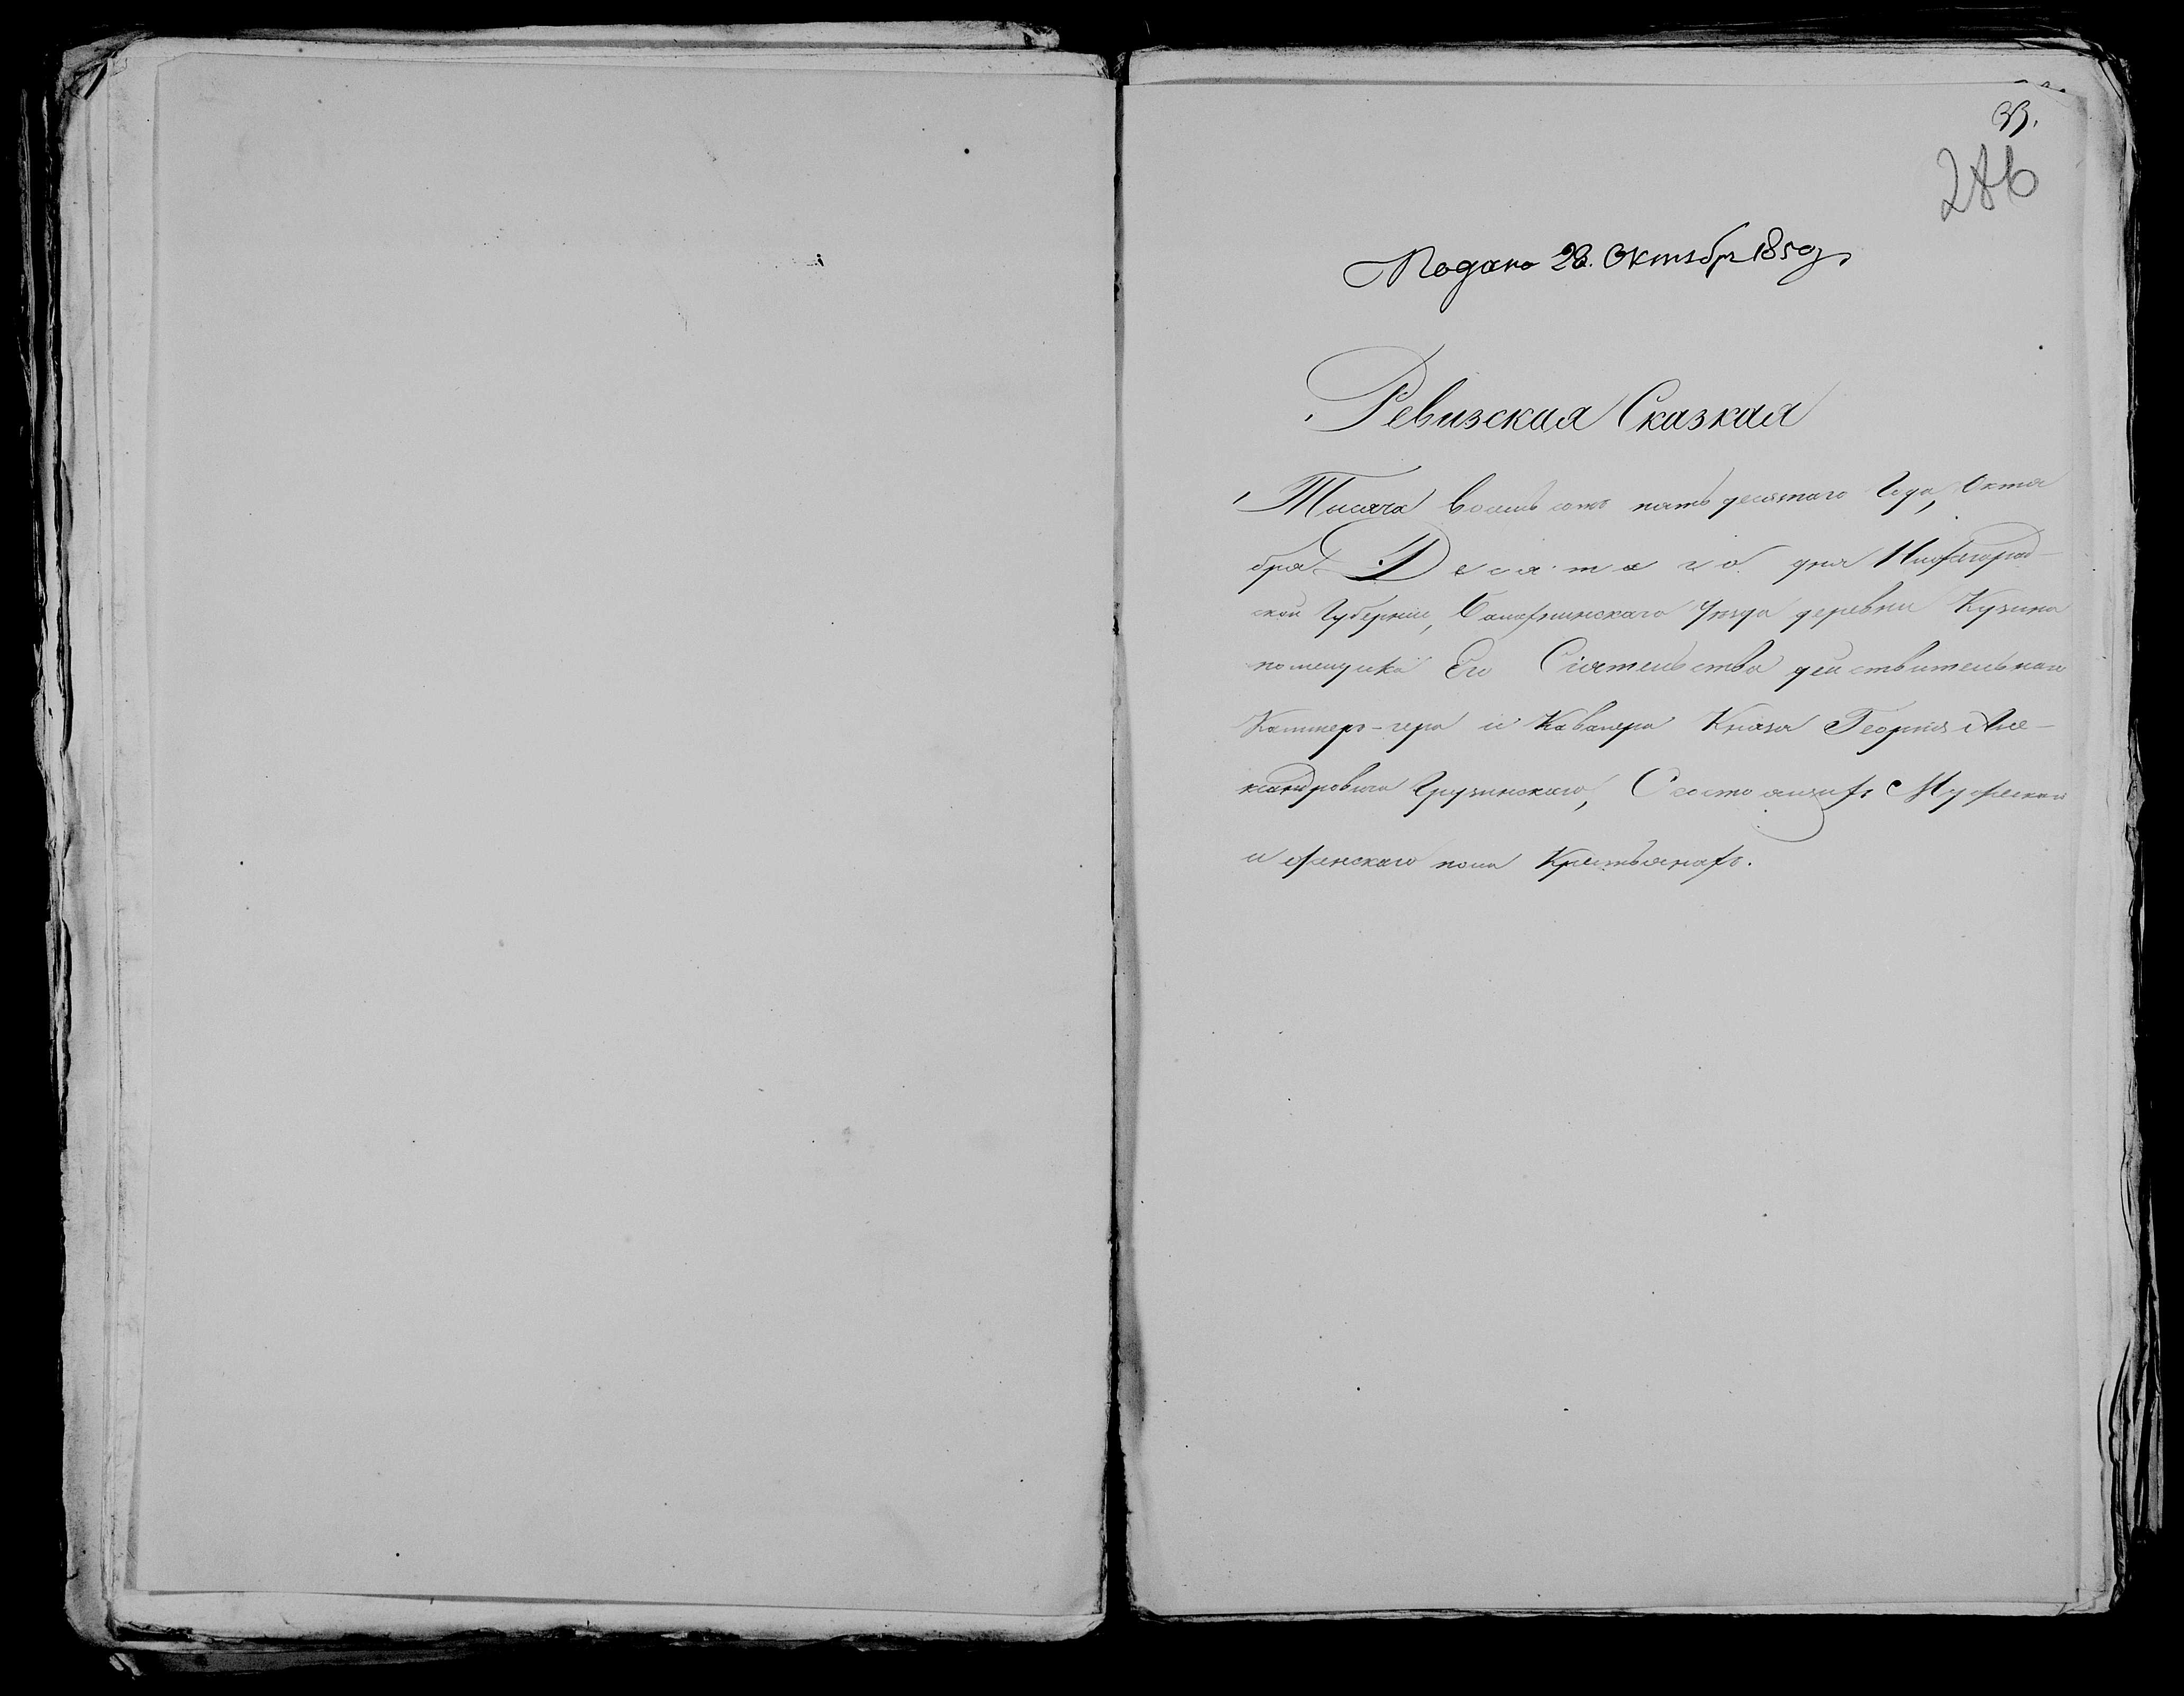 33.
286
Подано 28. Октября 1850 г.
Ревизская Сказкая
Тысяча восемь сотъ пять десятаго Года, Октя
бря Десятаго дня Нижегород-
ской Губерніи, Балахнинскаго Уѣзда деревни Кузина
помещика Его Сіятельства действительнаго
Каммеръ-гера и Кавалера Князя Георгия Але-
ксандровича Грузинскаго, О состоящихъ Мужеска
и женскаго пола Крестьянахъ.